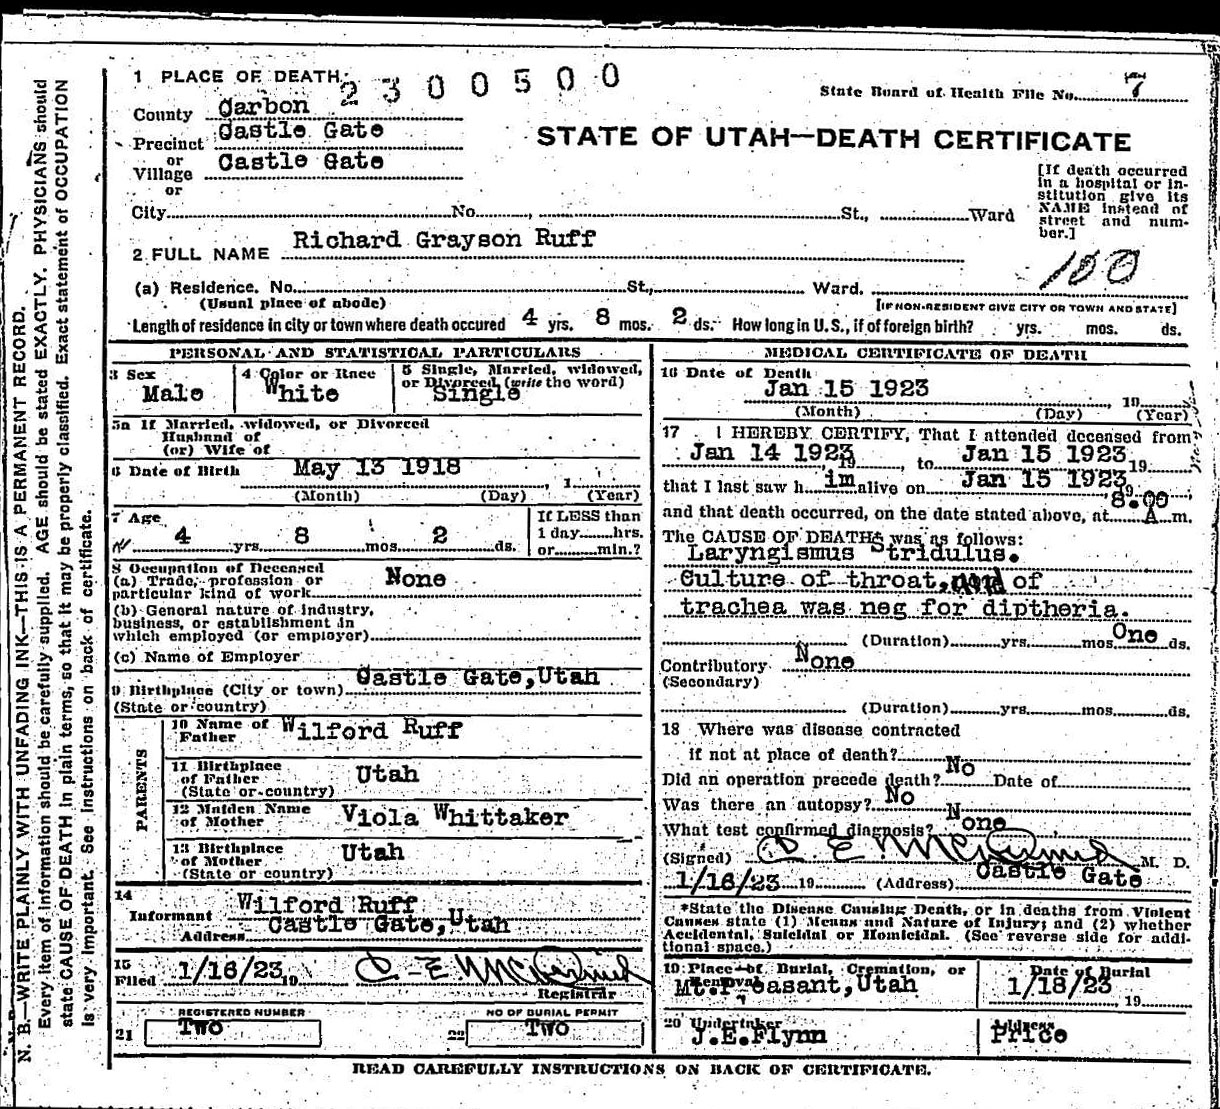 1 PLACE OF DEATH 2300500
State Board of Health File No. 7
County Carbon
Precinct Castle Gate
or
Village Castle Gate
or
STATE OF UTAH—DEATH CERTIFICATE
[If death occurred in a hospital or institution give its NAME instead of street and number.]
City No. St., Ward
2 FULL NAME Richard Grayson Ruff
100
(a) Residence. No. St., Ward.
(Usual place of abode) [IF NON-RESIDENT GIVE CITY OR TOWN AND STATE]
Length of residence in city or town where death occured 4 yrs. 8 mos. 2 ds. How long in U. S., if of foreign birth? yrs. mos. ds.
PERSONAL AND STATISTICAL PARTICULARS
3 Sex Male
4 Color or Race White
5 Single, Married, widowed, or Divorced (write the word) Single
5a If Married, widowed, or Divorced
Husband of
(or) Wife of
6 Date of Birth May 13 1918, 1
(Month) (Day) (Year)
7 Age 4 yrs. 8 mos. 2 ds.
If LESS than
1 day hrs.
or min.?
8 Occupation of Deceased
(a) Trade, profession or
particular kind of work None
(b) General nature of industry,
business, or establishment in
which employed (or employer)
(c) Name of Employer
9 Birthplace (City or town) Castle Gate, Utah
(State or country)
PARENTS
10 Name of Father Wilford Ruff
11 Birthplace of Father Utah
(State or country)
12 Maiden Name of Mother Viola Whittaker
13 Birthplace of Mother Utah
(State or country)
14
Informant Wilford Ruff
Address Castle Gate, Utah
15
Filed 1/16/23 19
Registrar
REGISTERED NUMBER
21 Two
NO OF BURIAL PERMIT
22 Two
MEDICAL CERTIFICATE OF DEATH
16 Date of Death
Jan 15 1923, 19
(Month) (Day) (Year)
17 I HEREBY CERTIFY, That I attended deceased from
Jan 14 1923, 19, to Jan 15 1923 19
that I last saw h im alive on Jan 15 1923 19
and that death occurred, on the date stated above, at 8.00 A m.
The CAUSE OF DEATH* was as follows:
Laryngismus Stridulus.
Culture of throat, and of
trachea was neg for diptheria.
(Duration) yrs. mos. One ds.
Contributory None
(Secondary)
(Duration) yrs. mos. ds.
18 Where was disease contracted
if not at place of death?
Did an operation precede death? No Date of
Was there an autopsy? No
What test confirmed diagnosis? None
(Signed) M. D.
1/16/23 19 (Address) Castle Gate
*State the Disease Causing Death, or in deaths from Violent
Causes state (1) Means and Nature of Injury; and (2) whether
Accidental, Suicidal or Homicidal. (See reverse side for addi-
tional space.)
19 Place of Burial, Cremation, or
Removal Mt. Pleasant, Utah
Date of Burial
1/18/23, 19
20 Undertaker J.E.Flynn
Address Price
READ CAREFULLY INSTRUCTIONS ON BACK OF CERTIFICATE.
N. B.—WRITE PLAINLY WITH UNFADING INK—THIS IS A PERMANENT RECORD.
Every item of information should be carefully supplied. AGE should be stated EXACTLY. PHYSICIANS should
state CAUSE OF DEATH in plain terms, so that it may be properly classified. Exact statement of OCCUPATION
is very important. See instructions on back of certificate.